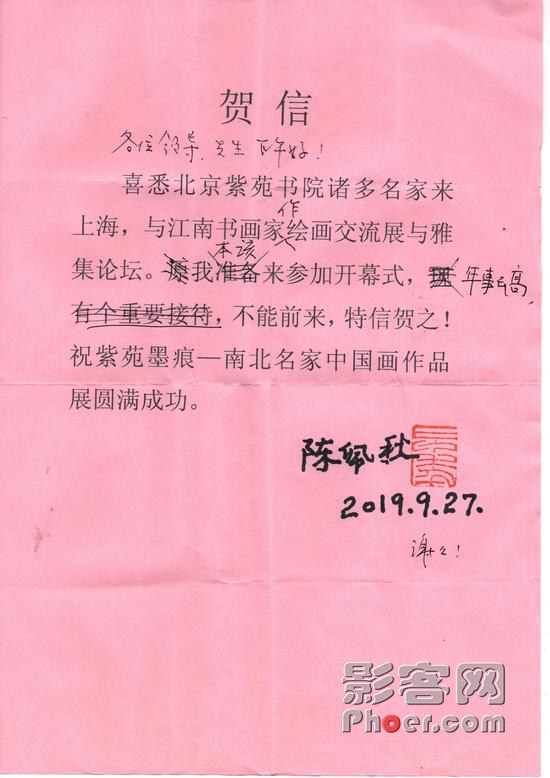 贺信
各位领导、先生下午好！
喜悉北京紫苑书院诸多名家来
作
上海，与江南书画家绘画交流展与雅
本该
集论坛。原我准备来参加开幕式，因 年事已高
有个重要接待，不能前来，特信贺之！
祝紫苑墨痕—南北名家中国画作品
展圆满成功。
陈佩秋
2019.9.27.
谢谢！
影客网
Phoer.com